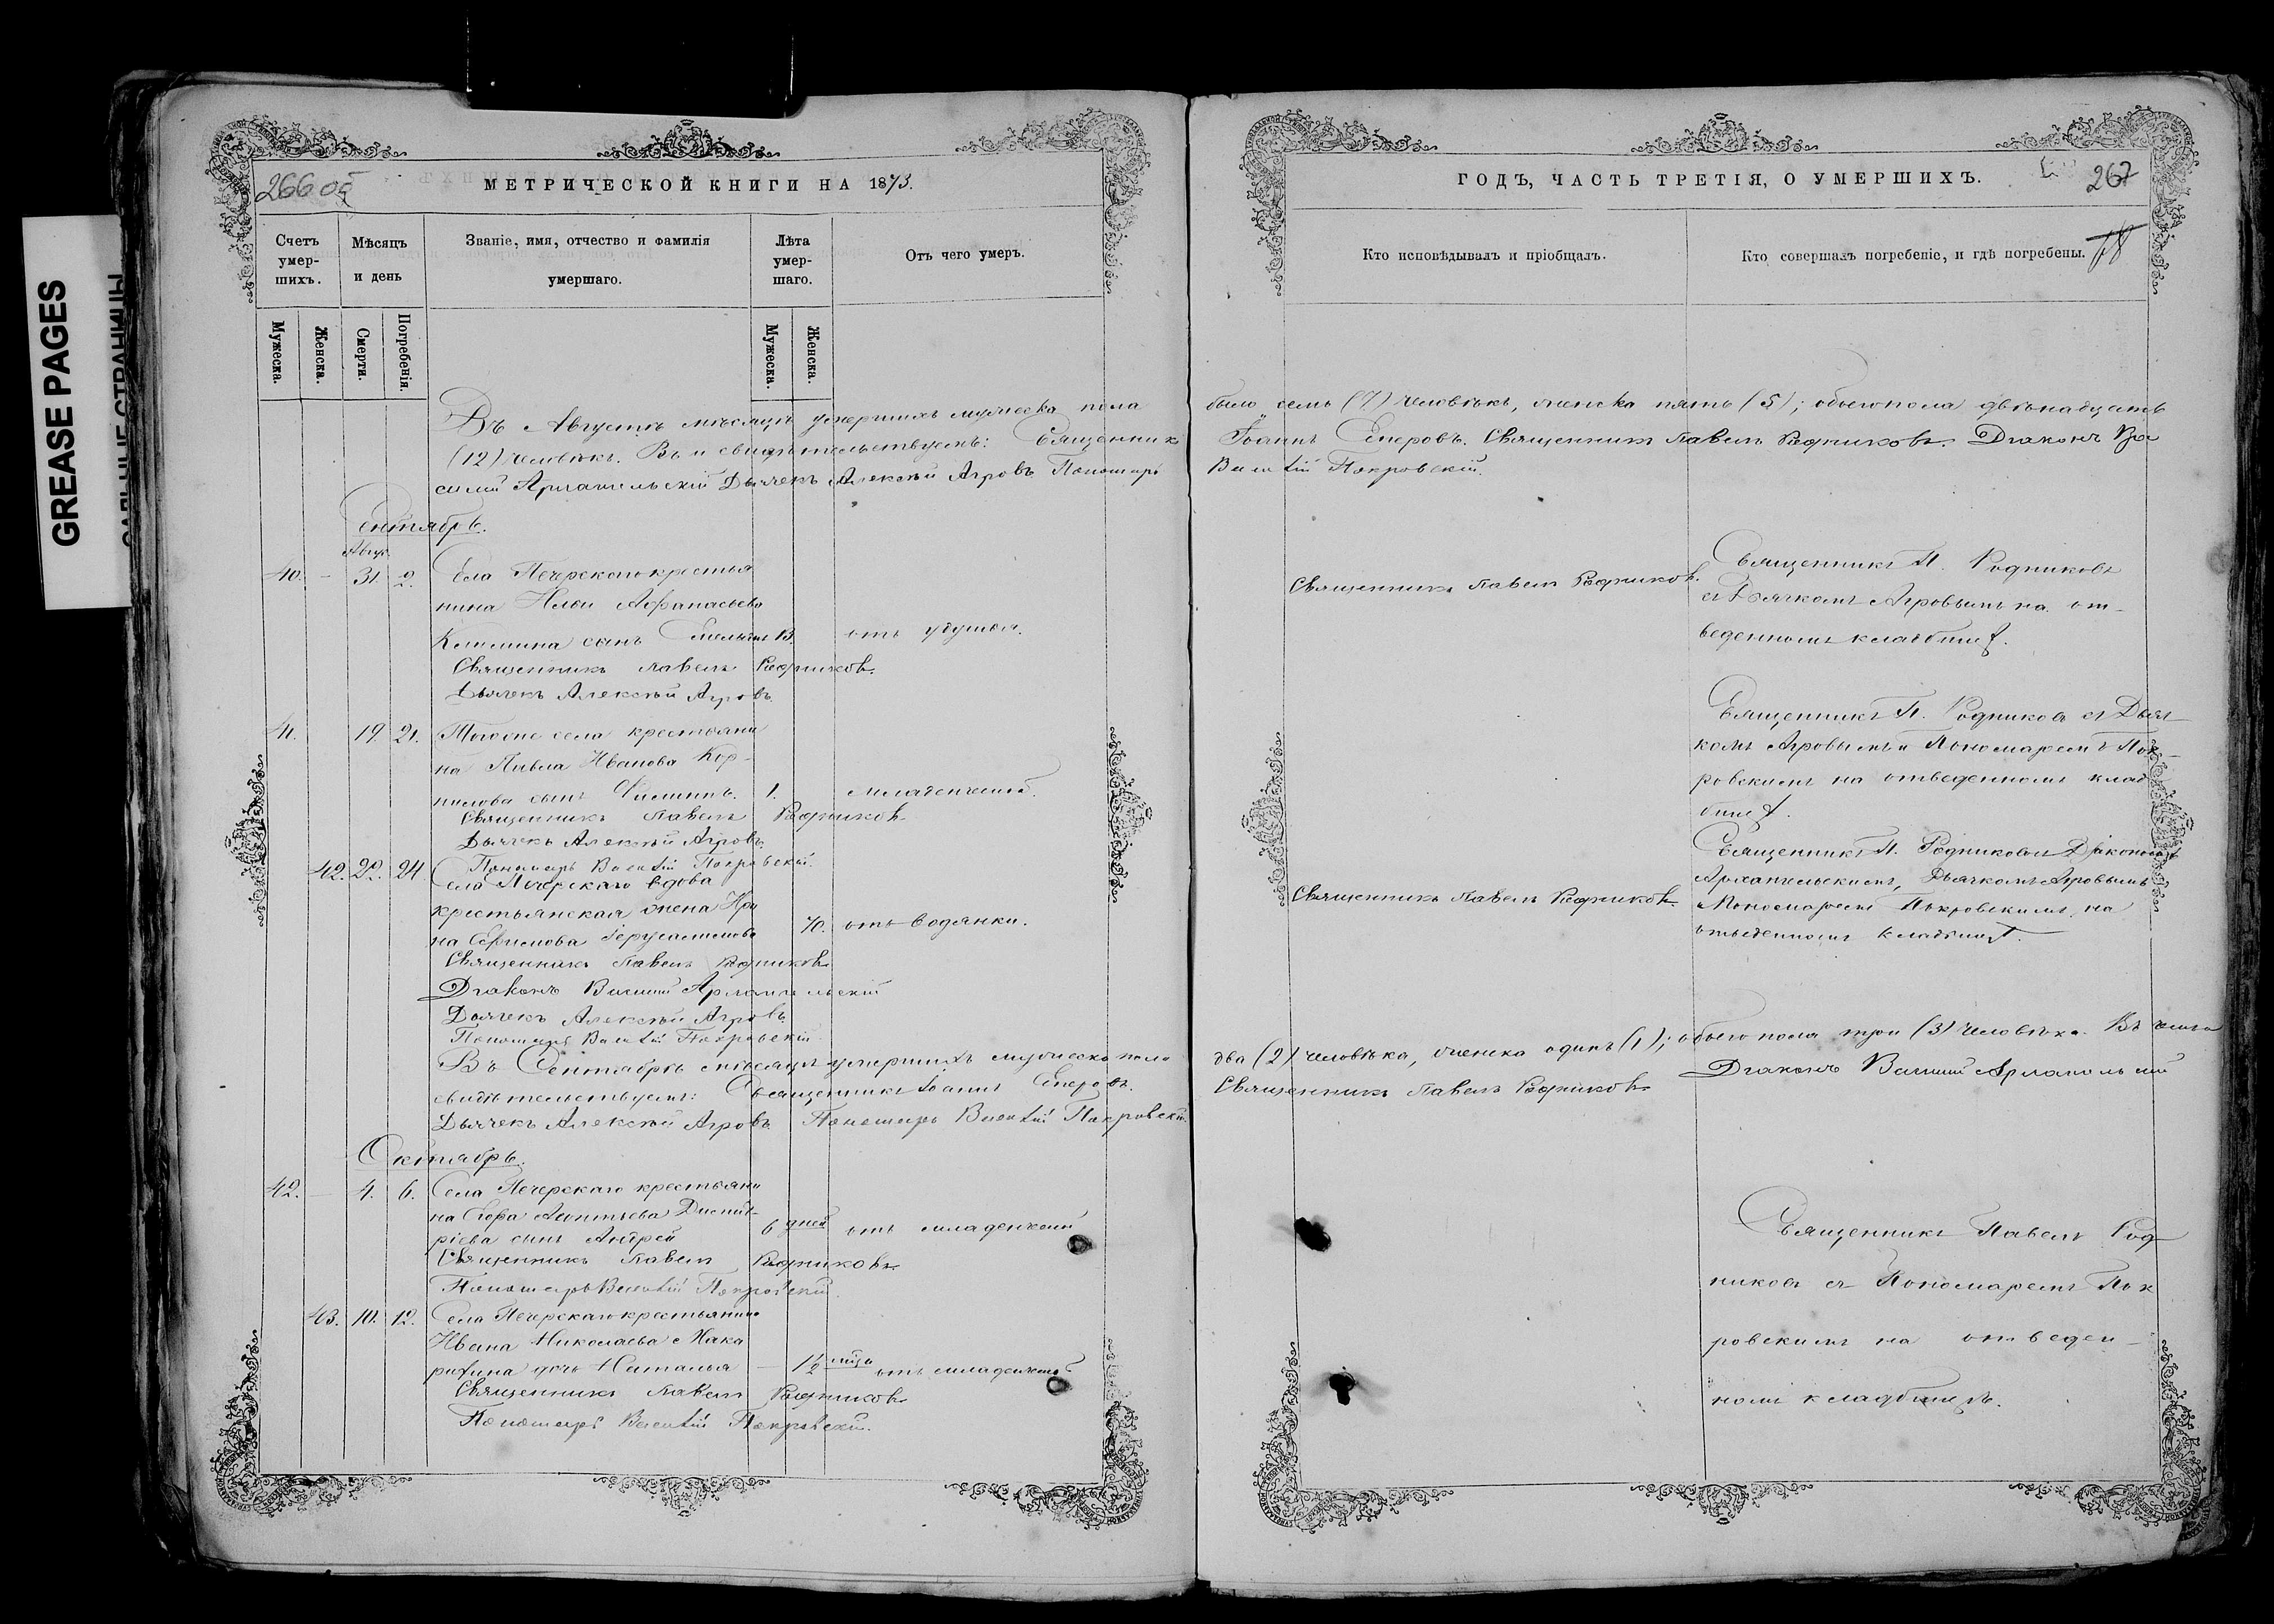 GREASE PAGES
266 об
МЕТРИЧЕСКОЙ КНИГИ НА 1873.
Счетъ умер-шихъ.
Мѣсяцъ и день
Званіе, имя, отчество и фамилія умершаго.
Лѣта умер-шаго.
Отъ чего умеръ.
Мужеска.
Женска.
Смерти.
Погребенія.
Мужеска.
Женска.
Въ Августѣ мѣсяцѣ умершихъ мужеска пола
(12) человѣкъ. свидѣтельствуемъ: Священникъ
Архангельскій Дьячекъ Алексѣй Агровъ Пономарь
Сентябрь.
Авгус.
40. – 31. 2. Села Печерскаго крестья
нина Ильи Афанасьева
сынъ 13. отъ удушья.
Священникъ Павелъ Родниковъ.
Дьячекъ Алексѣй Агровъ.
41. 19. 21. Тогоже села крестьяни
на Павла Иванова Кор-
нилова сынъ 1. младенческой.
Священникъ Павелъ Родниковъ.
Дьячекъ Алексѣй Агровъ.
Пономарь Покровскій.
42. 22. 24 Села Печерскаго вдова
крестьянская жена Ири
на Ефимова 70. отъ водянки.
Священникъ Павелъ Родниковъ
Діаконъ Архангельскій
Дьячекъ Алексѣй Агровъ.
Пономарь Покровскій
Въ Сентябрѣ мѣсяцѣ умершихъ мужеска пола
свидѣтельствуемъ: Священникъ Іоаннъ
Дьячекъ Алексѣй Агровъ. Пономарь Покровскій.
Октябрь.
42. – 4. 6. Села Печерскаго крестьяни
на Дмит-
ріева сынъ Андрей 6 дней отъ младенческой
Священникъ Павелъ Родниковъ
Пономарь Покровскій.
43. 10. 12. Села Печерскаго крестьянина
Ивана Николаева Мака
рихина дочь Наталья – 1½ мѣся отъ младенческой
Священникъ Павелъ Родниковъ
Пономарь Покровскій.
ГОДЪ, ЧАСТЬ ТРЕТІЯ, О УМЕРШИХЪ.
267
Кто исповѣдывалъ и пріобщалъ.
Кто совершалъ погребеніе, и гдѣ погребены.
было семь (7) человѣкъ, женска пять (5); обоего пола двѣнадцать
Іоаннъ Священникъ Павелъ Родниковъ. Діаконъ
Покровскій.
Священникъ Павелъ Родниковъ.
Священникъ П. Родниковъ
съ Дьячкомъ Агровымъ на от-
веденномъ кладбищѣ.
Священникъ П. Родниковъ съ Дьяч-
комъ Агровымъ и Пономаремъ Пок-
ровскимъ на отведенномъ клад
бищѣ.
Священникъ Павелъ Родниковъ.
Священникъ П. Родниковъ съ Діакономъ
Архангельскимъ, Дьячкомъ Агровымъ
Пономаремъ Покровскимъ на
отведенномъ кладбищѣ.
два (2) человѣка, женска одинъ (1); обоего пола три (3) человѣка. Въ чемъ и
Священникъ Павелъ Родниковъ
Діаконъ Архангельскій
Священникъ Павелъ Род
никовъ съ Пономаремъ Пок
ровскимъ на отведен-
номъ кладбищѣ.